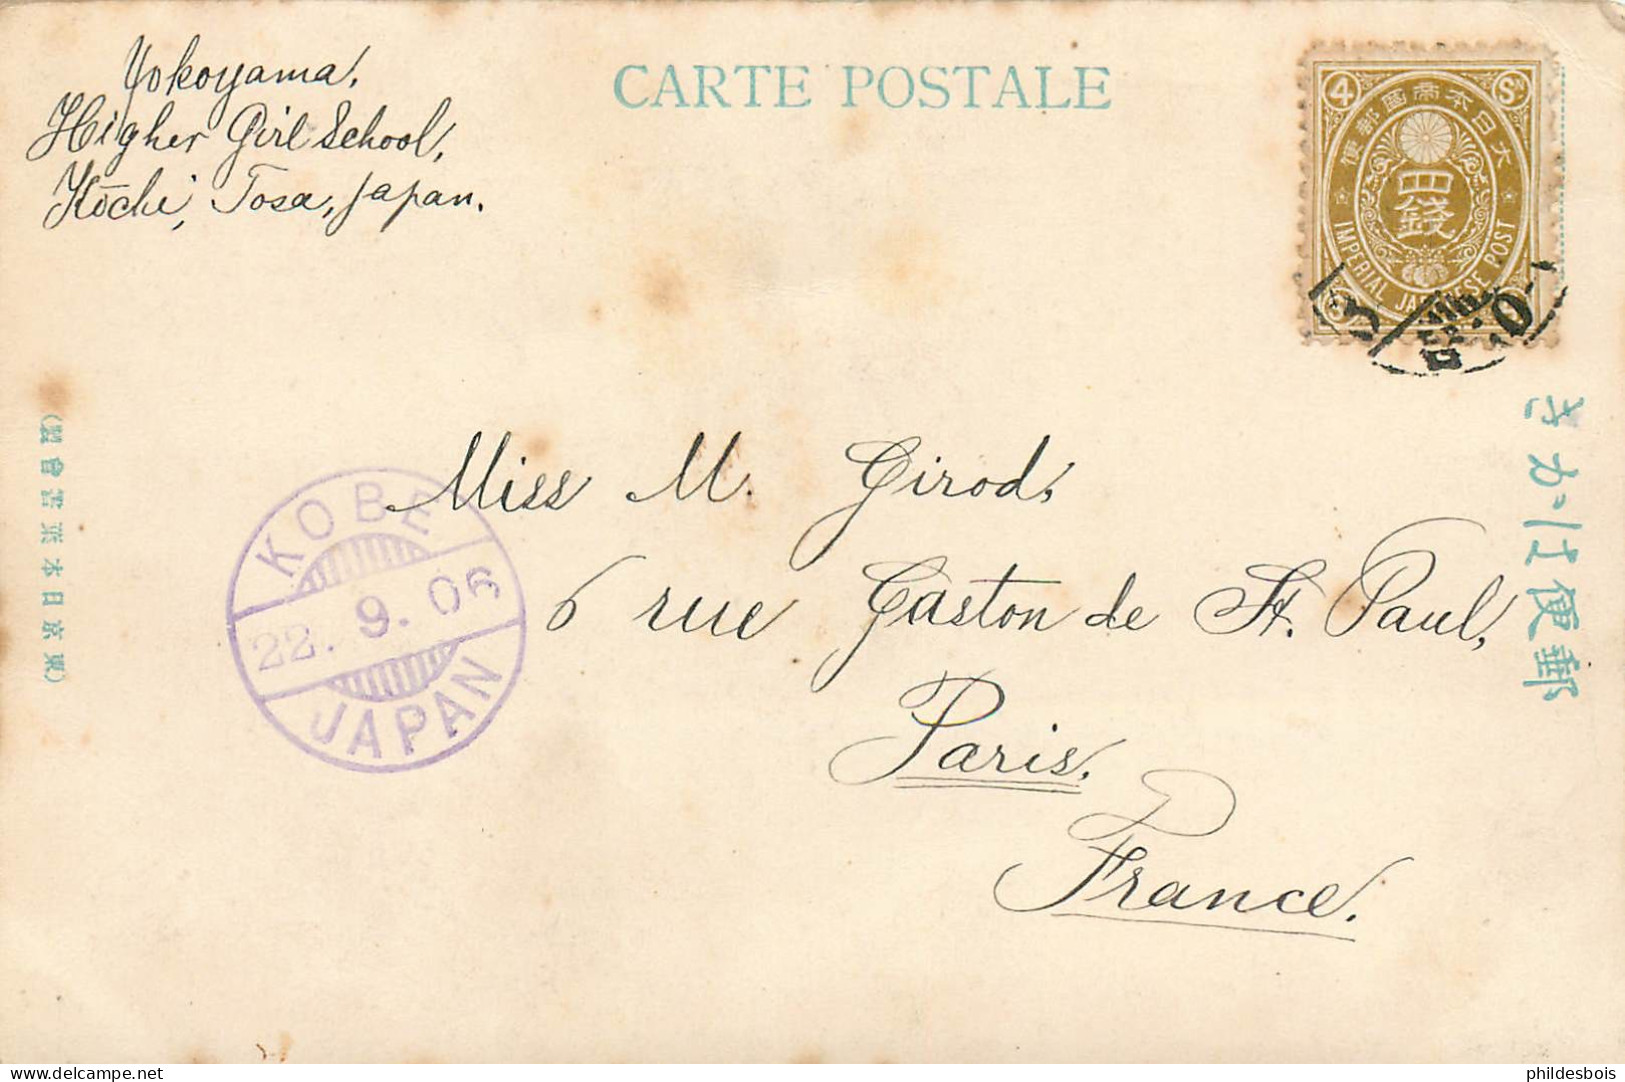 Yokoyama,
Higher Girl School,
Kōchi, Tosa, Japan.
CARTE POSTALE
4 Sn
大日本帝國郵便
四錢
IMPERIAL JAPANESE POST
Miss M. Girod,
6 rue Gaston de St. Paul,
Paris,
France.
KOBE
22. 9. 06
JAPAN
郵便はかき
(東京日本葉書會製)
Delcampe.net
phildesbois